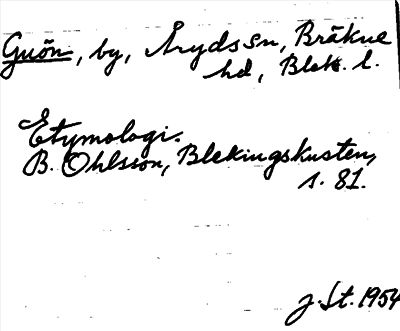 Guön, by, Åryds sn, Bräkne
hd, Blek. l.
Etymologi.
B. Ohlsson, Blekingskusten,
s. 81.
J. St. 1954